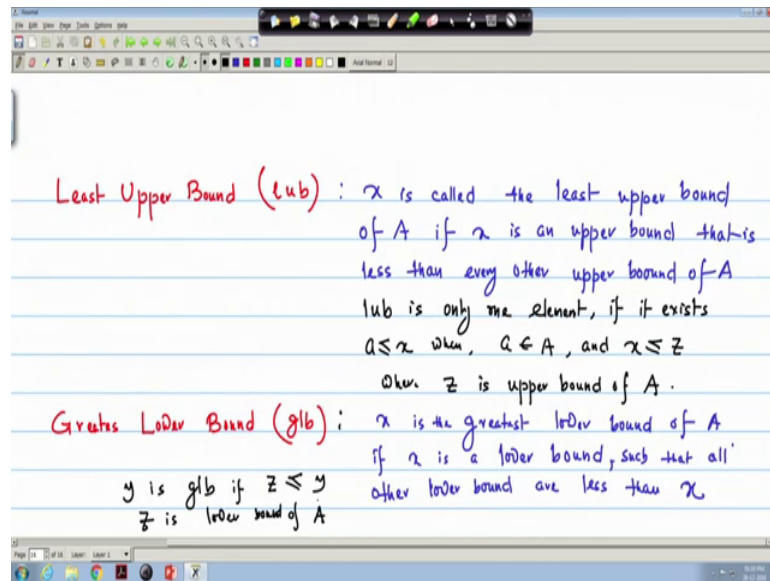 Journal
File Edit View Page Tools Options Help
Arial Normal 12
Least Upper Bound (lub) : x is called the least upper bound
of A if x is an upper bound that is
less than every other upper bound of A
lub is only one element, if it exists
a ≤ x when, a ∈ A, and x ≤ z
when z is upper bound of A.
Greates Lower Bound (glb) : x is the greatest lower bound of A
if x is a lower bound, such that all
other lower bound are less than x
y is glb if z ≤ y
z is lower bound of A
Page 16 of 16 Layer: Layer 1